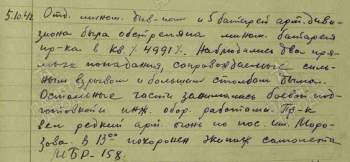 5.10.42 Отд. миномт. див-ном и 5 батарей арт. диви-
зиона была обстреляна миномт. батарея
пр-ка в кв. 4991. Наблюдались два пря-
мые попадания, сопровождаемые силь-
ным взрывом и большим столбом дыма.
Остальные части занимались боевой под-
готовкой и инж. обор. работами. Пр-к
вел редкий арт. огонь по пос. им. Моро-
зова. В 13⁰⁰ похоронен экипаж самолета
МБР-158.